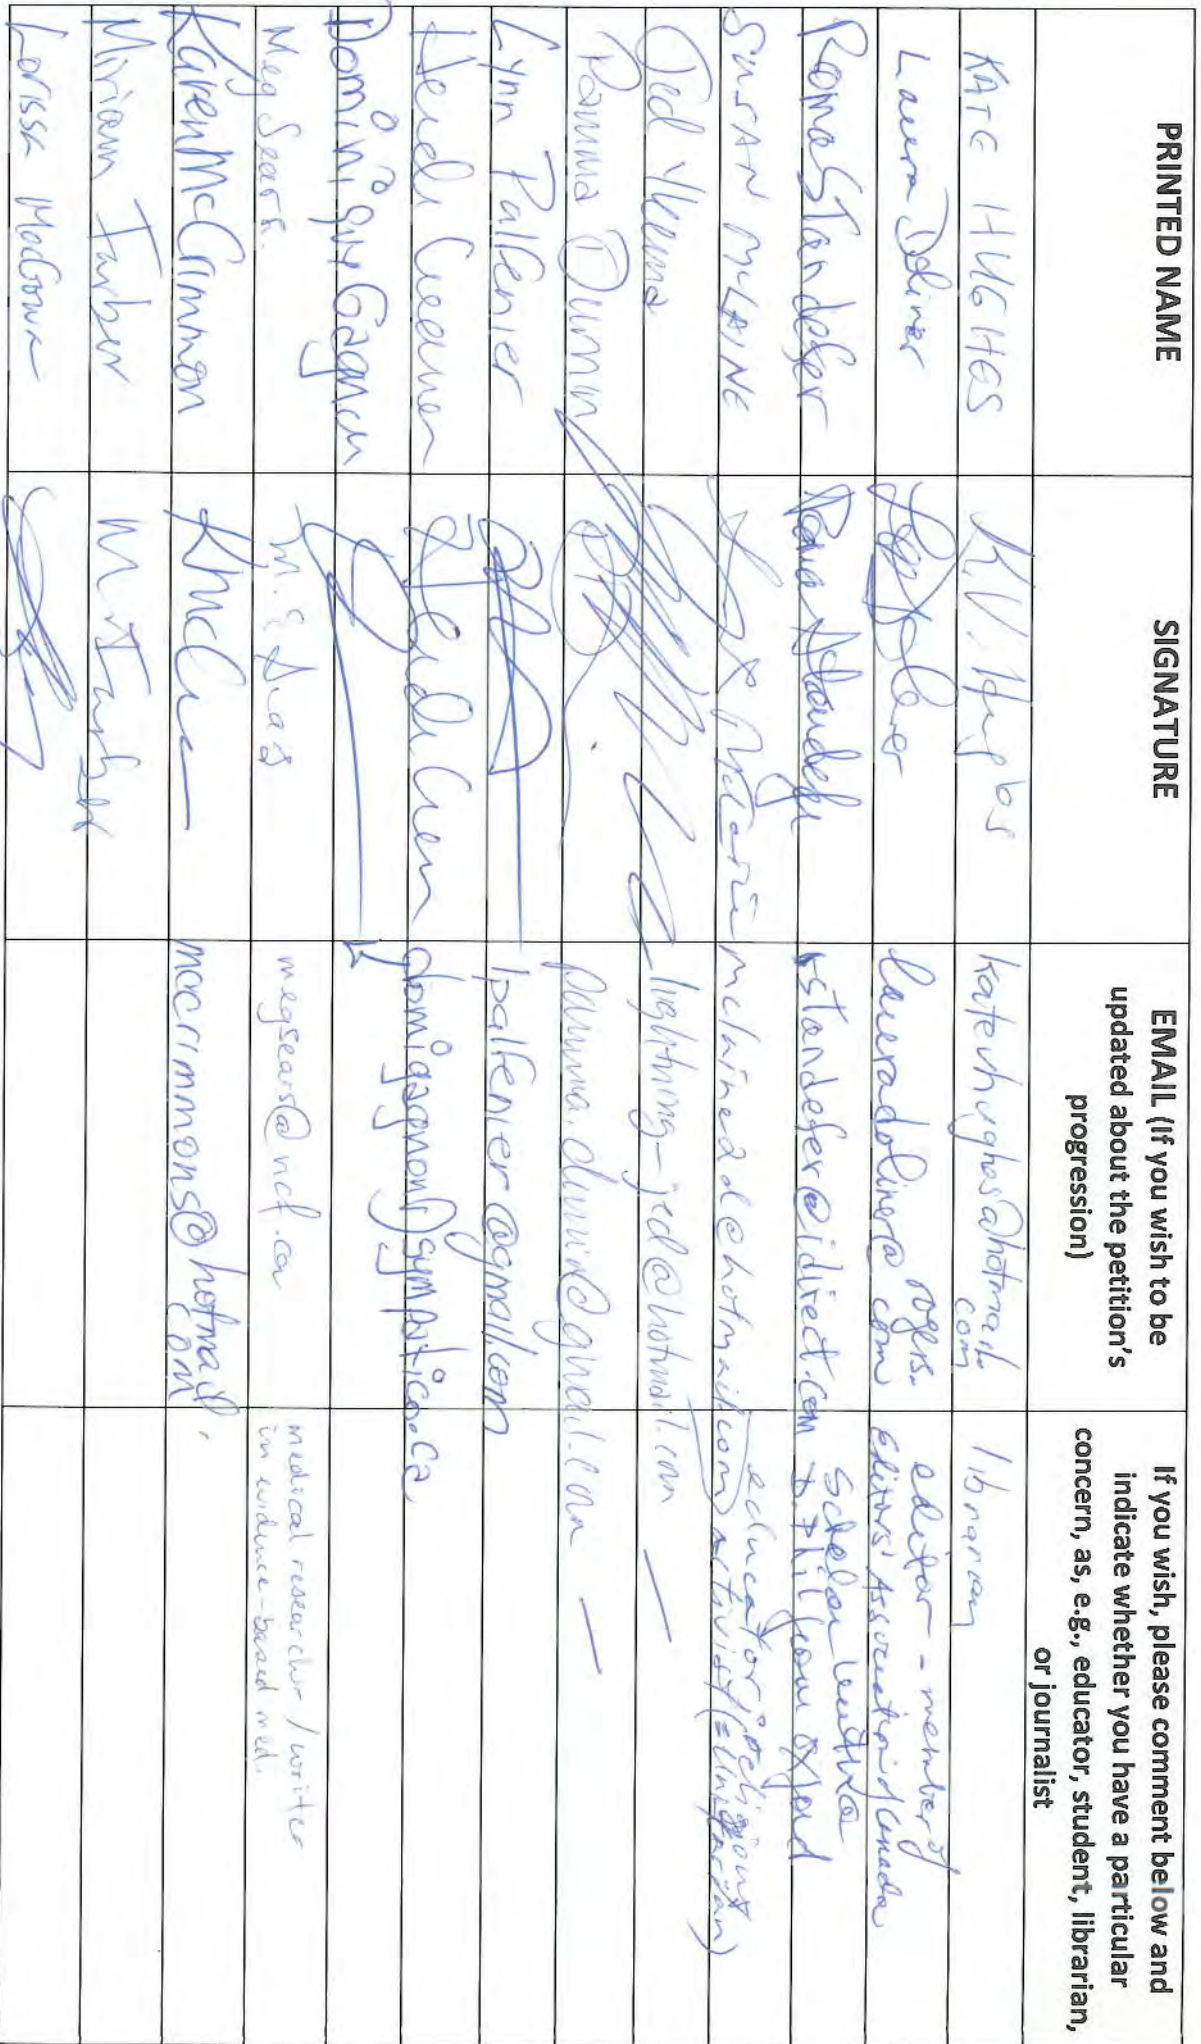 PRINTED NAME
SIGNATURE
EMAIL (If you wish to be
updated about the petition's
progression)
If you wish, please comment below and
indicate whether you have a particular
concern, as, e.g., educator, student, librarian,
or journalist
KATE HUGHES
K.V. Hughes
katevhughes@hotmail.
com
librarian
Laura Doliner
lauradoliner@rogers.
com
editor - member of
Editors' Association of Canada
Roma Standefer
Roma Standefer
rstandefer@idirect.com
SUSAN McLAINE
mclainedd@hotmail.com
educator; religious
artivist (= Unitarian)
Jed
lightning-jed@hotmail.com
—
Pamma Dunnin
pamma.dunnin@gmail.com
—
Lynn Palfenier
lpalfenier@gmail.com
Heidi
Heidi
Dominique Gagnon
domigagnon@sympatico.ca
Meg Sears.
M. E Sears
megsears@ncf.ca
medical researcher / writer
in evidence-based med.
Karen McCrimmon
KMcC
mccrimmons@hotmail.
com
Miriam Furber
M Furber
Lorissa MacGowan